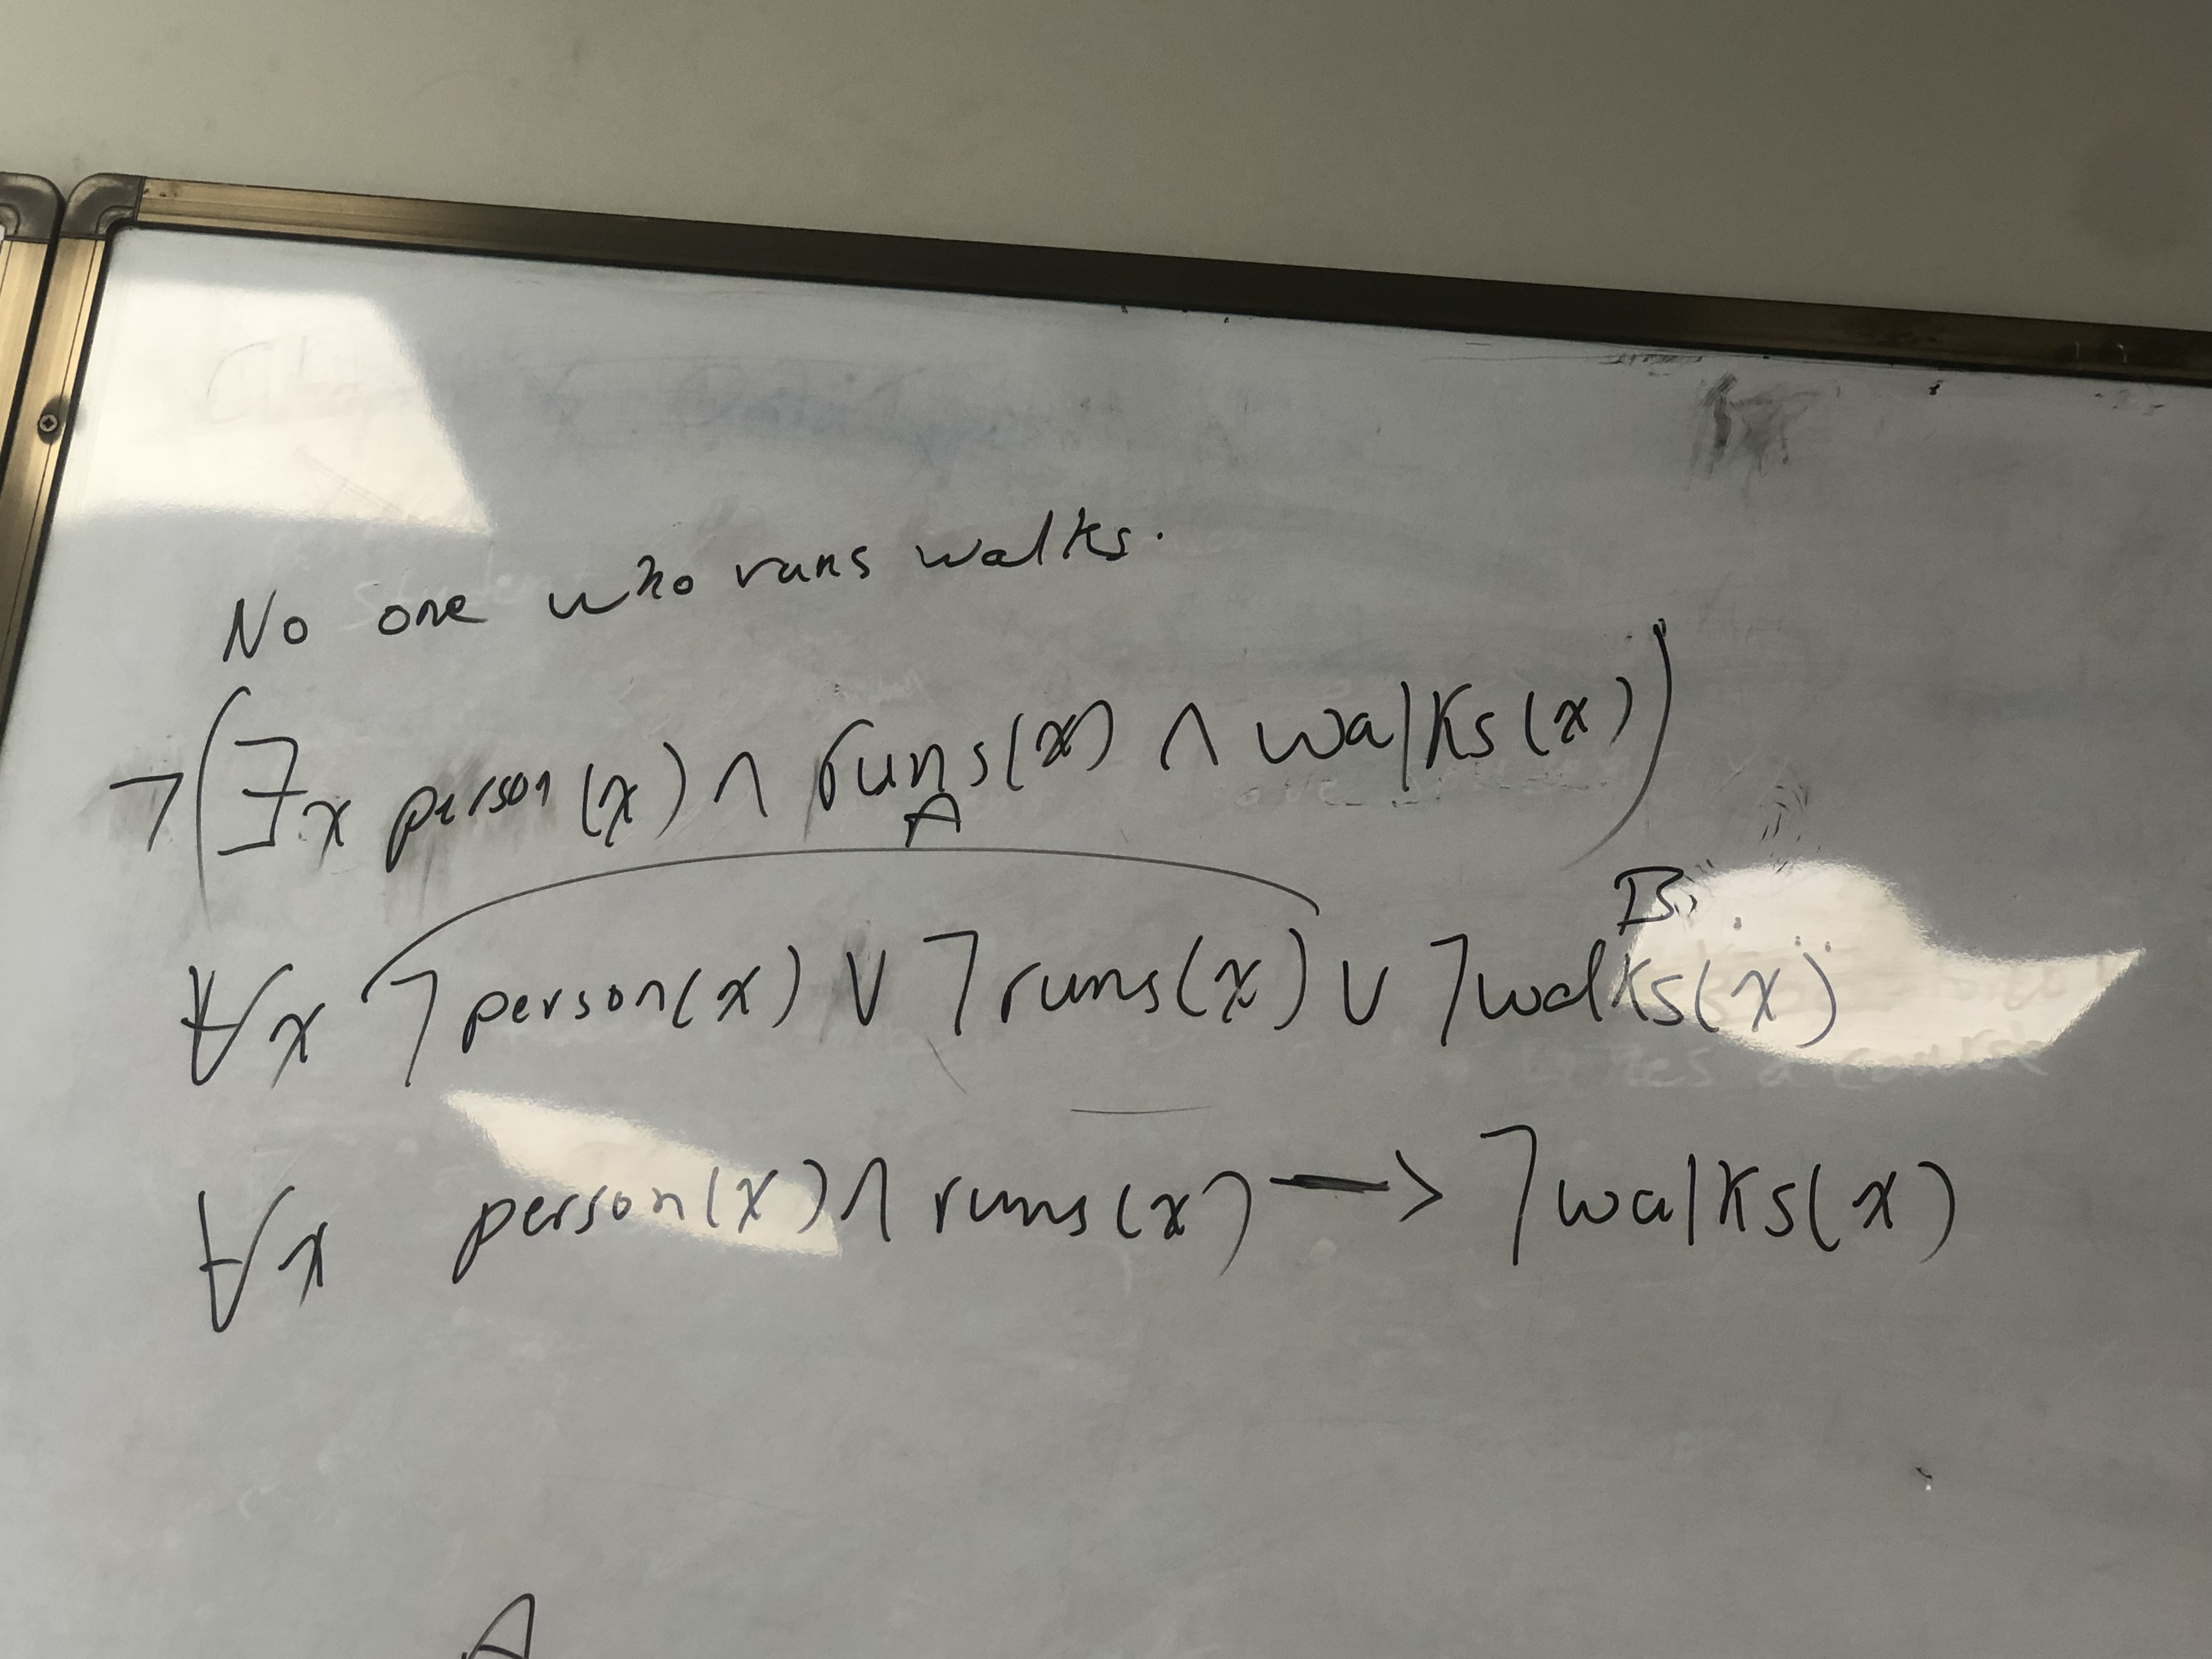 No one who runs walks.
¬(∃x person(x) ∧ runs(x) ∧ walks(x))
A
B
∀x ¬person(x) ∨ ¬runs(x) ∨ ¬walks(x)
∀x person(x) ∧ runs(x) → ¬walks(x)
A